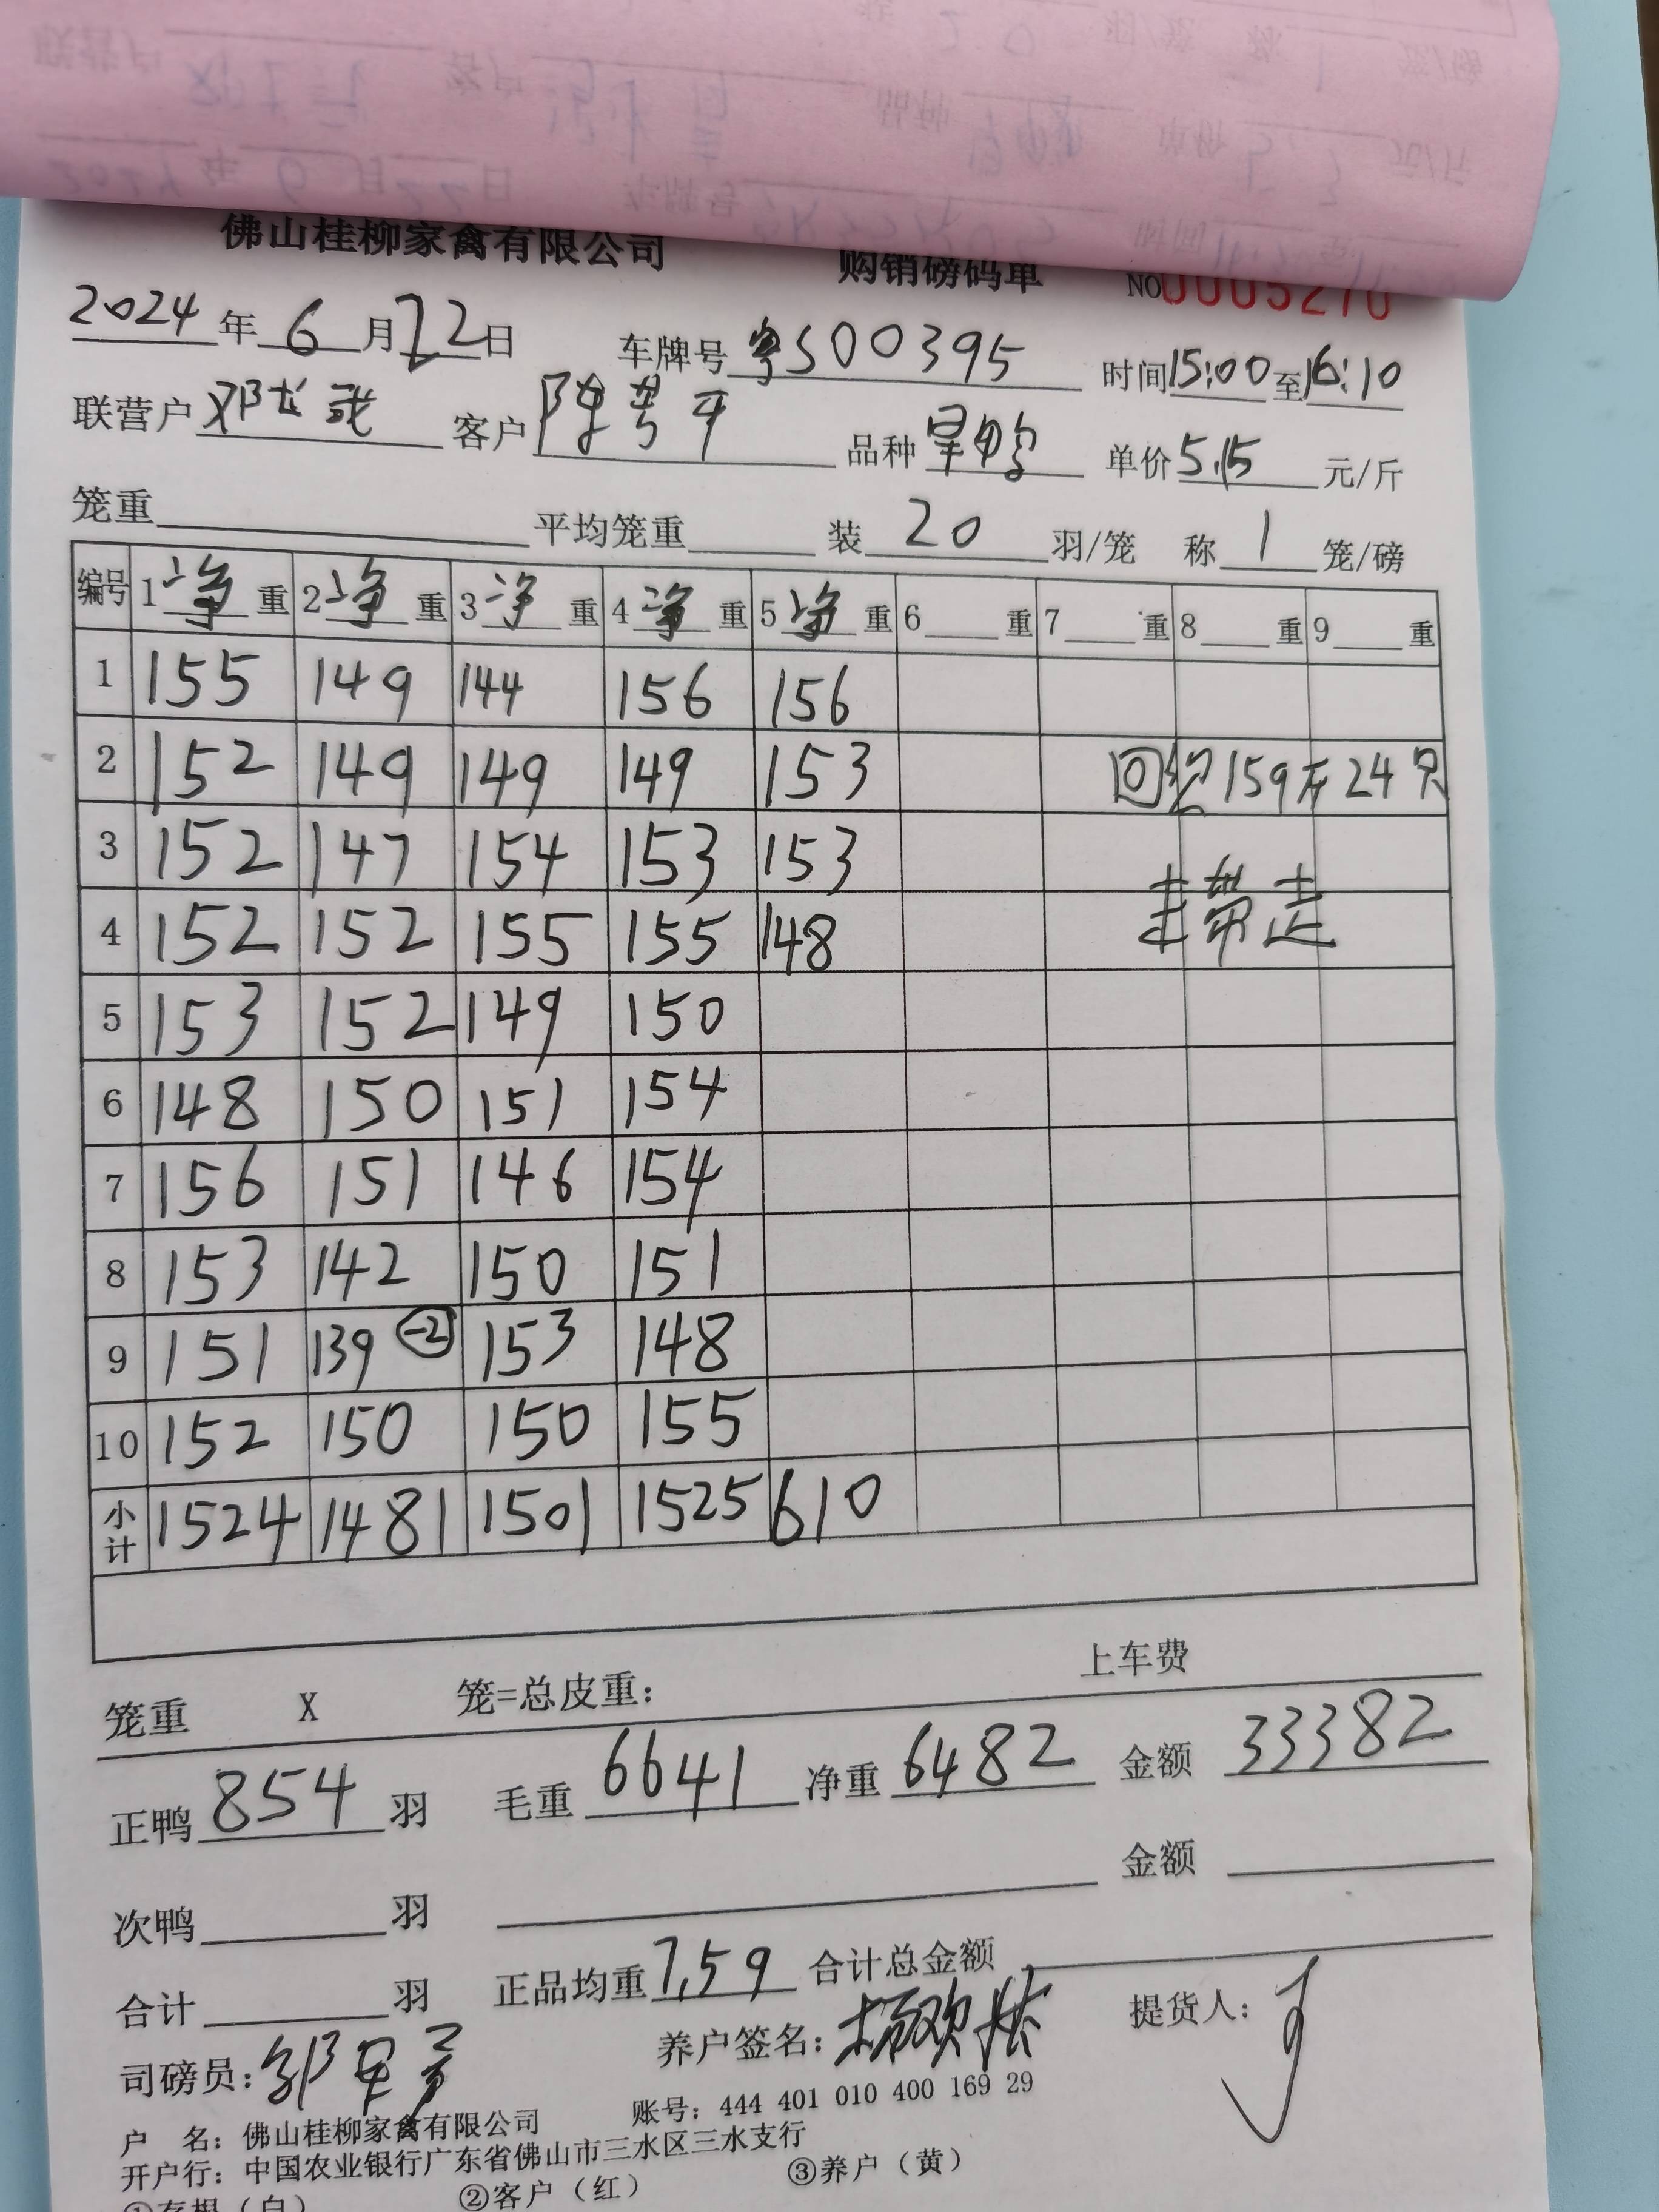 佛山桂柳家禽有限公司 购销磅码单 NO0005270
2024年6月22日 车牌号粤S00395 时间15:00至16:10
联营户邓 客户陈 平 品种旱鸭 单价5.15元/斤
笼重 平均笼重 装20羽/笼 称1笼/磅
编号 1净重 2净重 3净重 4净重 5净重 6重 7重 8重 9重
1 155 149 144 156 156
2 152 149 149 149 153 回 159斤24只
3 152 147 154 153 153
4 152 152 155 155 148 未带走
5 153 152 149 150
6 148 150 151 154
7 156 151 146 154
8 153 142 150 151
9 151 139 -2 153 148
10 152 150 150 155
小计 1524 1481 1501 1525 610
笼重 X 笼=总皮重: 上车费
正鸭854羽 毛重6641 净重6482 金额33382
次鸭 羽 金额
合计 羽 正品均重7.59 合计总金额
司磅员:邹 养户签名:杨欢 提货人:
户 名:佛山桂柳家禽有限公司 账号:444 401 010 400 169 29
开户行:中国农业银行广东省佛山市三水区三水支行
①存根(白) ②客户(红) ③养户(黄)